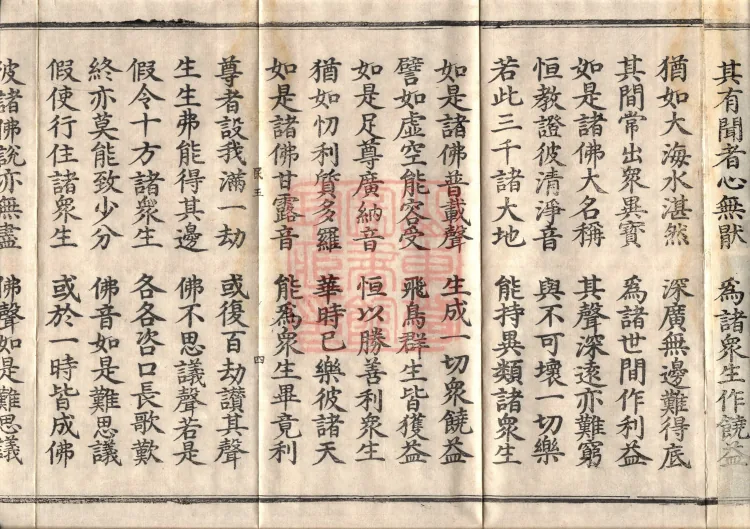 其有聞者心無厭 為諸衆生作饒益
猶如大海水湛然 深廣無邊難得底
其間常出衆異寶 為諸世間作利益
如是諸佛大名稱 其聲深遠亦難窮
恒教證彼清淨音 與不可壞一切樂
若此三千諸大地 能持異類諸衆生
如是諸佛普載聲 生成一切衆饒益
譬如虛空能容受 飛鳥群生皆獲益
如是足尊廣納音 恒以勝善利衆生
猶如忉利質多羅 華時已樂彼諸天
如是諸佛甘露音 能為衆生畢竟利
尊者設我滿一劫 或復百劫讚其聲
生生弗能得其邊 佛不思議聲若是
假令十方諸衆生 各各咨口長歌歎
終亦莫能致少分 佛音如是難思議
假使行住諸衆生 或於一時皆成佛
彼諸佛說亦無盡 佛聲如是難思議
四